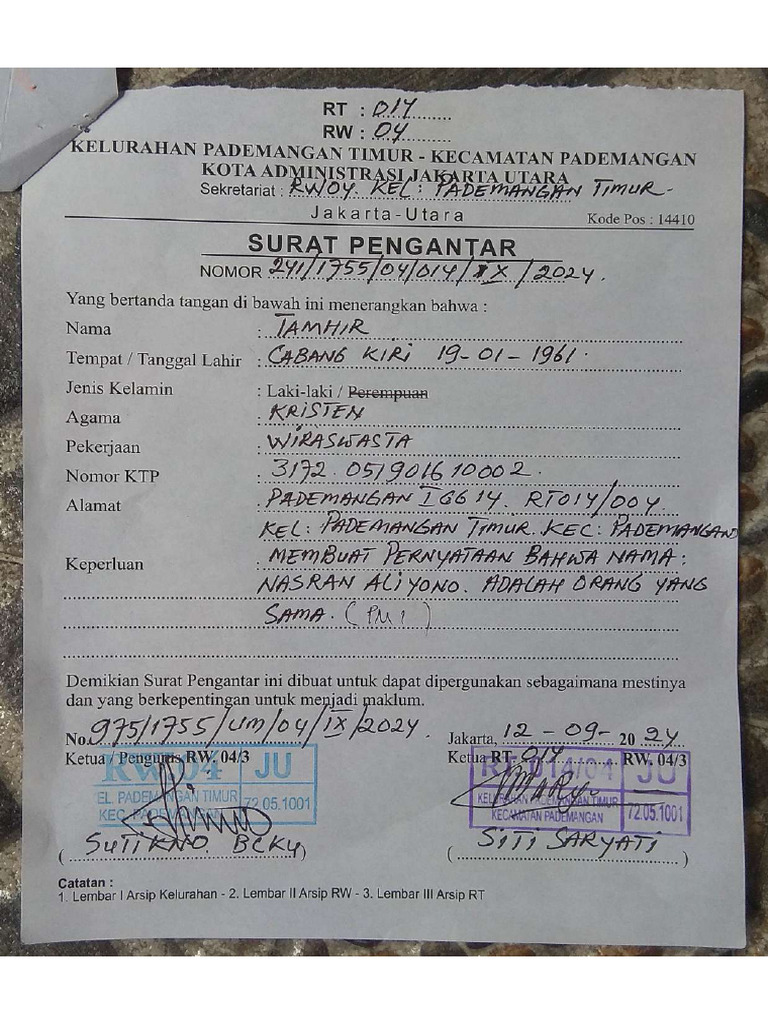 RT : 014
RW : 04
KELURAHAN PADEMANGAN TIMUR - KECAMATAN PADEMANGAN
KOTA ADMINISTRASI JAKARTA UTARA
Sekretariat : RW04. KEL: PADEMANGAN TIMUR-
Jakarta-Utara Kode Pos : 14410
SURAT PENGANTAR
NOMOR 241/1755/04/014/IX/2024.
Yang bertanda tangan di bawah ini menerangkan bahwa :
Nama : TAMHIR
Tempat / Tanggal Lahir : CABANG KIRI 19-01-1961.
Jenis Kelamin : Laki-laki / Perempuan
Agama : KRISTEN
Pekerjaan : WIRASWASTA
Nomor KTP : 3172 051901610002.
Alamat : PADEMANGAN I GG 14. RT014/004.
KEL: PADEMANGAN TIMUR. KEC: PADEMANGAN
Keperluan : MEMBUAT PERNYATAAN BAHWA NAMA:
NASRAN ALIYONO. ADALAH ORANG YANG
SAMA. (PMI)
Demikian Surat Pengantar ini dibuat untuk dapat dipergunakan sebagaimana mestinya
dan yang berkepentingan untuk menjadi maklum.
No. 975/1755/UM/04/IX/2024. Jakarta, 12-09-2024
Ketua / Pengurus RW. 04/3 Ketua RT 014 RW. 04/3
RW 04 JU RT 014/04 JU
KEL. PADEMANGAN TIMUR KELURAHAN PADEMANGAN TIMUR
KEC. PADEMANGAN 72.05.1001 KECAMATAN PADEMANGAN 72.05.1001
(SUTIKNO BCKY) (SITI SARYATI)
Catatan :
1. Lembar I Arsip Kelurahan - 2. Lembar II Arsip RW - 3. Lembar III Arsip RT